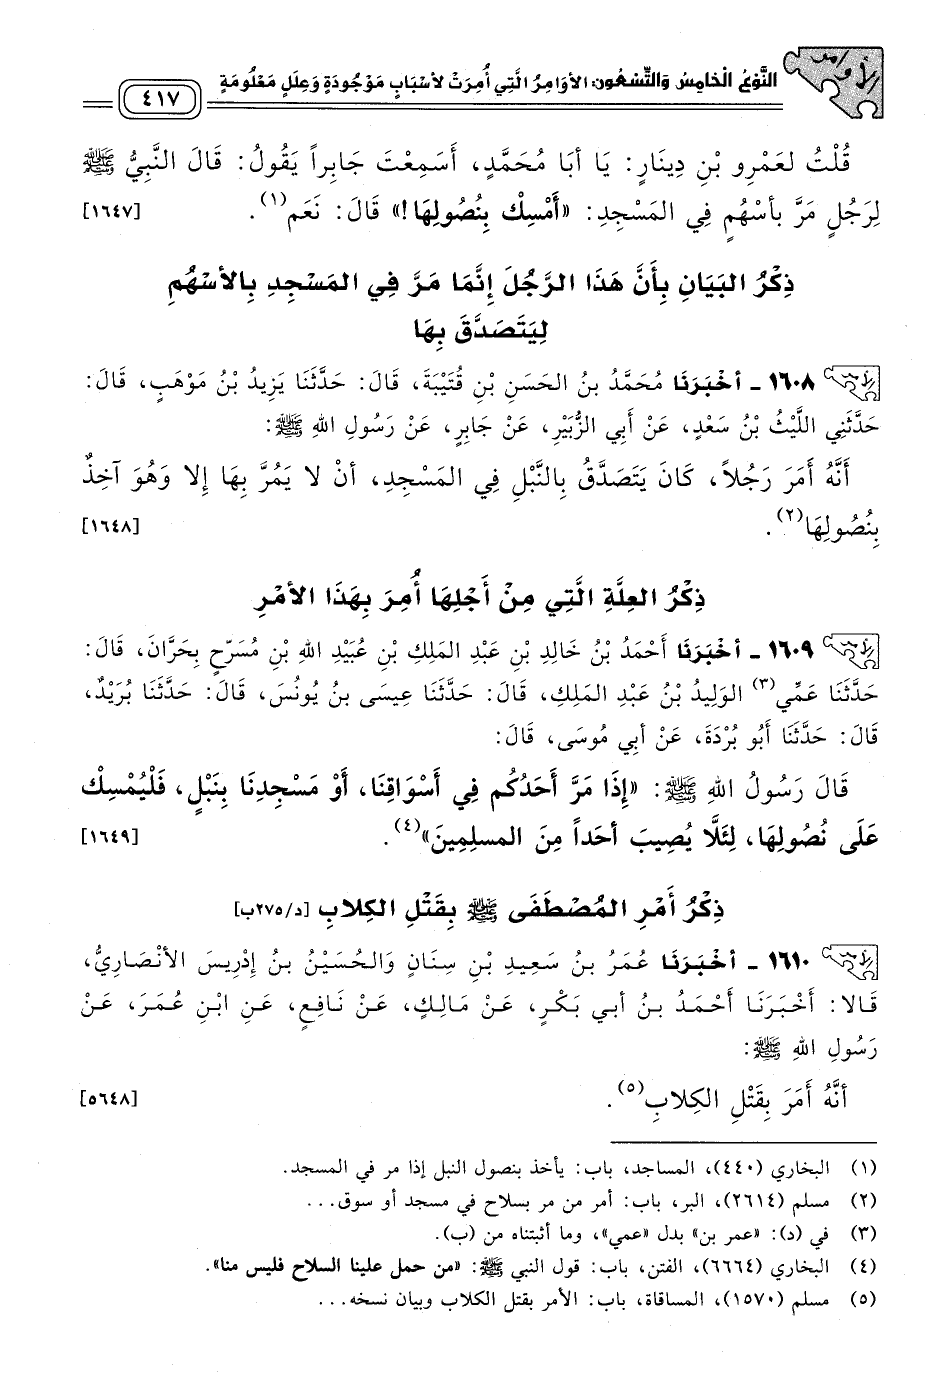 الأوامر
النَّوْعُ الْخَامِسُ وَالتِّسْعُونَ: الأَوَامِرُ الَّتِي أُمِرَتْ لأَسْبَابٍ مَوْجُودَةٍ وَعِلَلٍ مَعْلُومَةٍ
٤١٧
قُلْتُ لعَمْرِو بْنِ دِينَارٍ: يَا أبَا مُحَمَّدٍ، أَسَمِعْتَ جَابِراً يَقُولُ: قَالَ النَّبِيُّ ﷺ
لِرَجُلٍ مَرَّ بأسْهُمٍ فِي المَسْجِدِ: «أَمْسِكْ بِنُصُولِهَا!» قَالَ: نَعَم(١). [١٦٤٧]
ذِكْرُ البَيَانِ بِأَنَّ هَذَا الرَّجُلَ إنَّمَا مَرَّ فِي المَسْجِدِ بِالأسْهُمِ
لِيَتَصَدَّقَ بِهَا
١٦٠٨ ـ أخْبَرَنَا مُحَمَّدُ بنُ الحَسَنِ بْنِ قُتَيْبَةَ، قَالَ: حَدَّثَنَا يَزِيدُ بْنُ مَوْهَبٍ، قَالَ:
حَدَّثَنِي اللَّيْثُ بْنُ سَعْدٍ، عَنْ أَبِي الزُّبَيْرِ، عَنْ جَابِرٍ، عَنْ رَسُولِ اللهِ ﷺ:
أَنَّهُ أَمَرَ رَجُلاً، كَانَ يَتَصَدَّقُ بِالنَّبْلِ فِي المَسْجِدِ، أنْ لا يَمُرَّ بِهَا إلا وَهُوَ آخِذٌ
بِنُصُولِهَا(٢). [١٦٤٨]
ذِكْرُ العِلَّةِ الَّتِي مِنْ أَجْلِهَا أُمِرَ بِهَذَا الأمْرِ
١٦٠٩ ـ أخْبَرَنَا أَحْمَدُ بْنُ خَالِدِ بْنِ عَبْدِ المَلِكِ بْنِ عُبَيْدِ اللهِ بْنِ مُسَرَّحٍ بِحَرَّانَ، قَالَ:
حَدَّثَنَا عَمِّي(٣) الوَلِيدُ بْنُ عَبْدِ المَلِكِ، قَالَ: حَدَّثَنَا عِيسَى بنُ يُونُسَ، قَالَ: حَدَّثَنَا بُرَيْدٌ،
قَالَ: حَدَّثَنَا أَبُو بُرْدَةَ، عَنْ أبِي مُوسَى، قَالَ:
قَالَ رَسُولُ اللهِ ﷺ: «إِذَا مَرَّ أَحَدُكُم فِي أَسْوَاقِنَا، أَوْ مَسْجِدِنَا بِنَبْلٍ، فَلْيُمْسِكْ
عَلَى نُصُولِهَا، لِئَلَّا يُصِيبَ أحَداً مِنَ المسلِمِينَ»(٤). [١٦٤٩]
ذِكْرُ أَمْرِ المُصْطَفَى ﷺ بِقَتْلِ الكِلابِ [د/٢٧٥ب]
١٦١٠ ـ أخْبَرَنَا عُمَرُ بنُ سَعِيدِ بْنِ سِنَانٍ وَالحُسَيْنُ بنُ إدْرِيسَ الأنْصَارِيُّ،
قَالا: أَخْبَرَنَا أَحْمَدُ بنُ أبي بَكْرٍ، عَنْ مَالِكٍ، عَنْ نَافِعٍ، عَنِ ابْنِ عُمَرَ، عَنْ
رَسُولِ اللهِ ﷺ:
أنَّهُ أَمَرَ بِقَتْلِ الكِلابِ(٥). [٥٦٤٨]
(١) البخاري (٤٤٠)، المساجد، باب: يأخذ بنصول النبل إذا مر في المسجد.
(٢) مسلم (٢٦١٤)، البر، باب: أمر من مر بسلاح في مسجد أو سوق...
(٣) في (د): «عمر بن» بدل «عمي»، وما أثبتناه من (ب).
(٤) البخاري (٦٦٦٤)، الفتن، باب: قول النبي ﷺ: «من حمل علينا السلاح فليس منا».
(٥) مسلم (١٥٧٠)، المساقاة، باب: الأمر بقتل الكلاب وبيان نسخه...